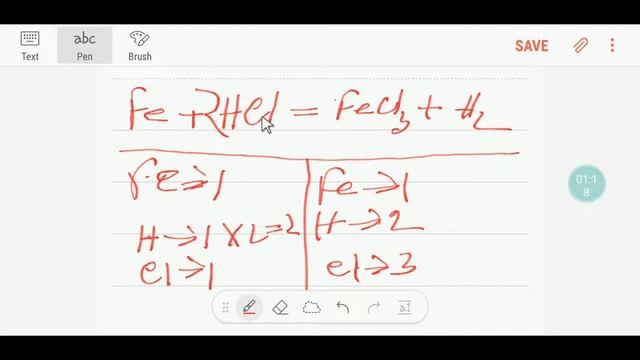 Text
abc
Pen
Brush
SAVE
Fe + 2HCl = FeCl3 + H2
Fe → 1
Fe → 1
H → 1 X 2 = 2
H → 2
Cl → 1
Cl → 3
01:1
8